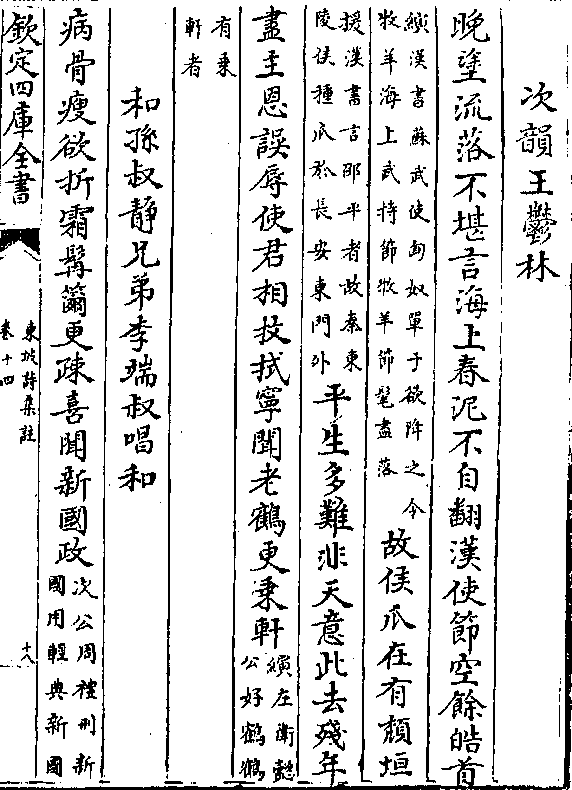 次韻王鬱林
晚塗流落不堪言海上春泥不自翻漢使節空餘皓首
縯漢書蘇武使匈奴單于欲降之令
牧羊海上武持節牧羊節髦盡落
故侯瓜在有頹垣
援漢書言邵平者故秦東
陵侯種瓜於長安東門外
平生多難非天意此去殘年
盡主恩誤辱使君相抆拭寧聞老鶴更乘軒
縯左衛懿
公好鶴鶴
有乘
軒者
和孫叔靜兄弟李端叔唱和
病骨瘦欲折霜髯籋更疎喜聞新國政
次公周禮刑新
國用輕典新國
欽定四庫全書
東坡詩集註
卷十四
十八